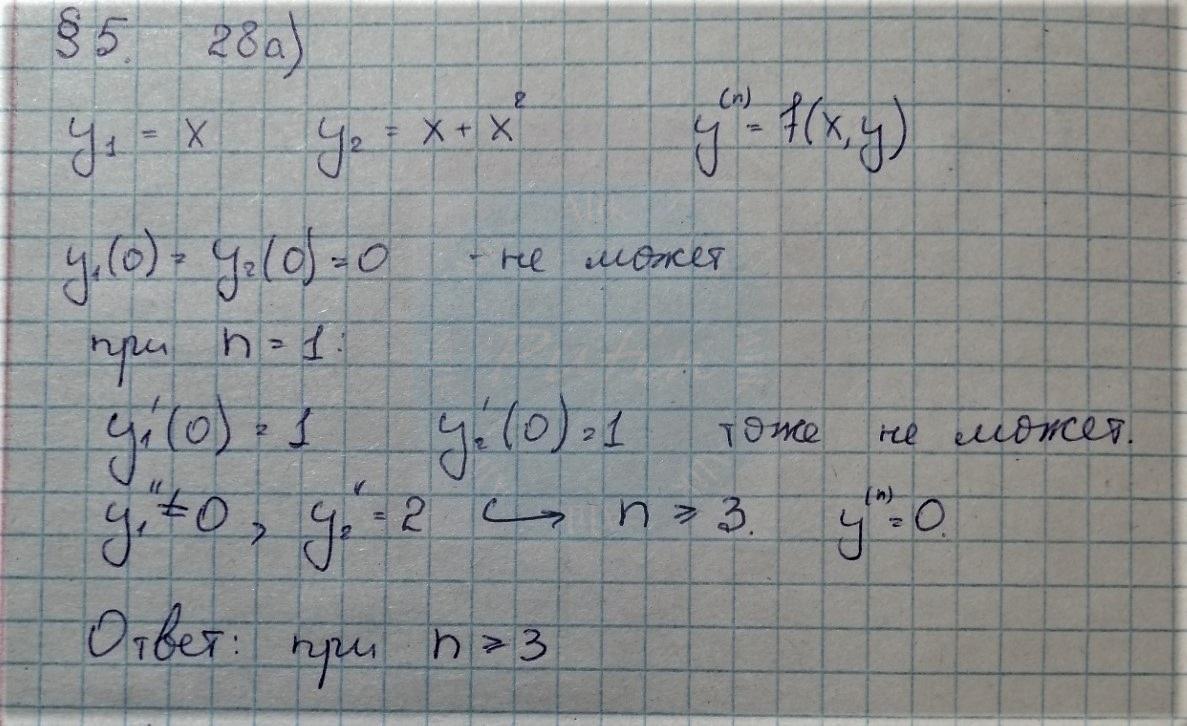 §5. 28а)
y₁ = x y₂ = x + x² y⁽ⁿ⁾ = f(x, y)
y₁(0) = y₂(0) = 0 - не может
при n = 1:
y₁'(0) = 1 y₂'(0) = 1 тоже не может.
y₁'' ≠ 0, y₂'' = 2 ↪ n ⩾ 3. y⁽ⁿ⁾ = 0.
Ответ: при n ⩾ 3